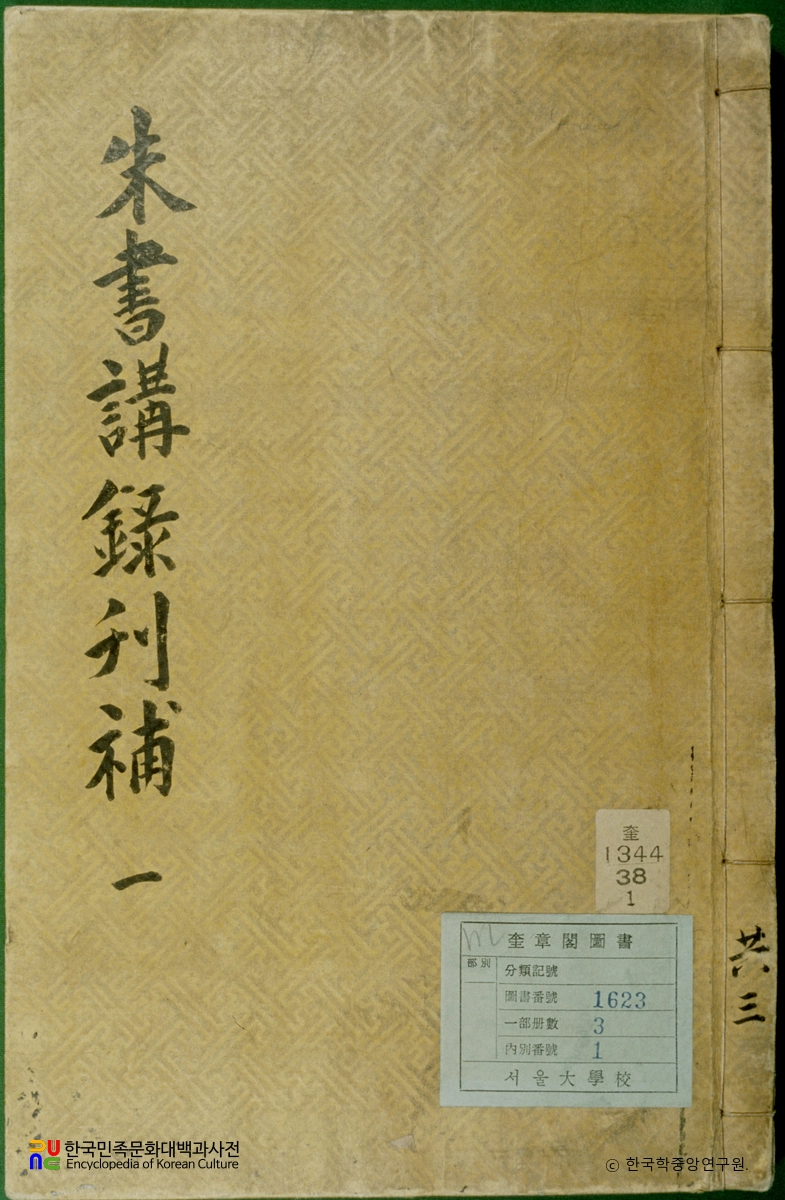 朱書講錄刊補 一
共三
奎
1344
38
1
奎章閣圖書
部別
分類記號
圖書番號 1623
一部册數 3
內別番號 1
서울大學校
한국민족문화대백과사전
Encyclopedia of Korean Culture
ⓒ 한국학중앙연구원.